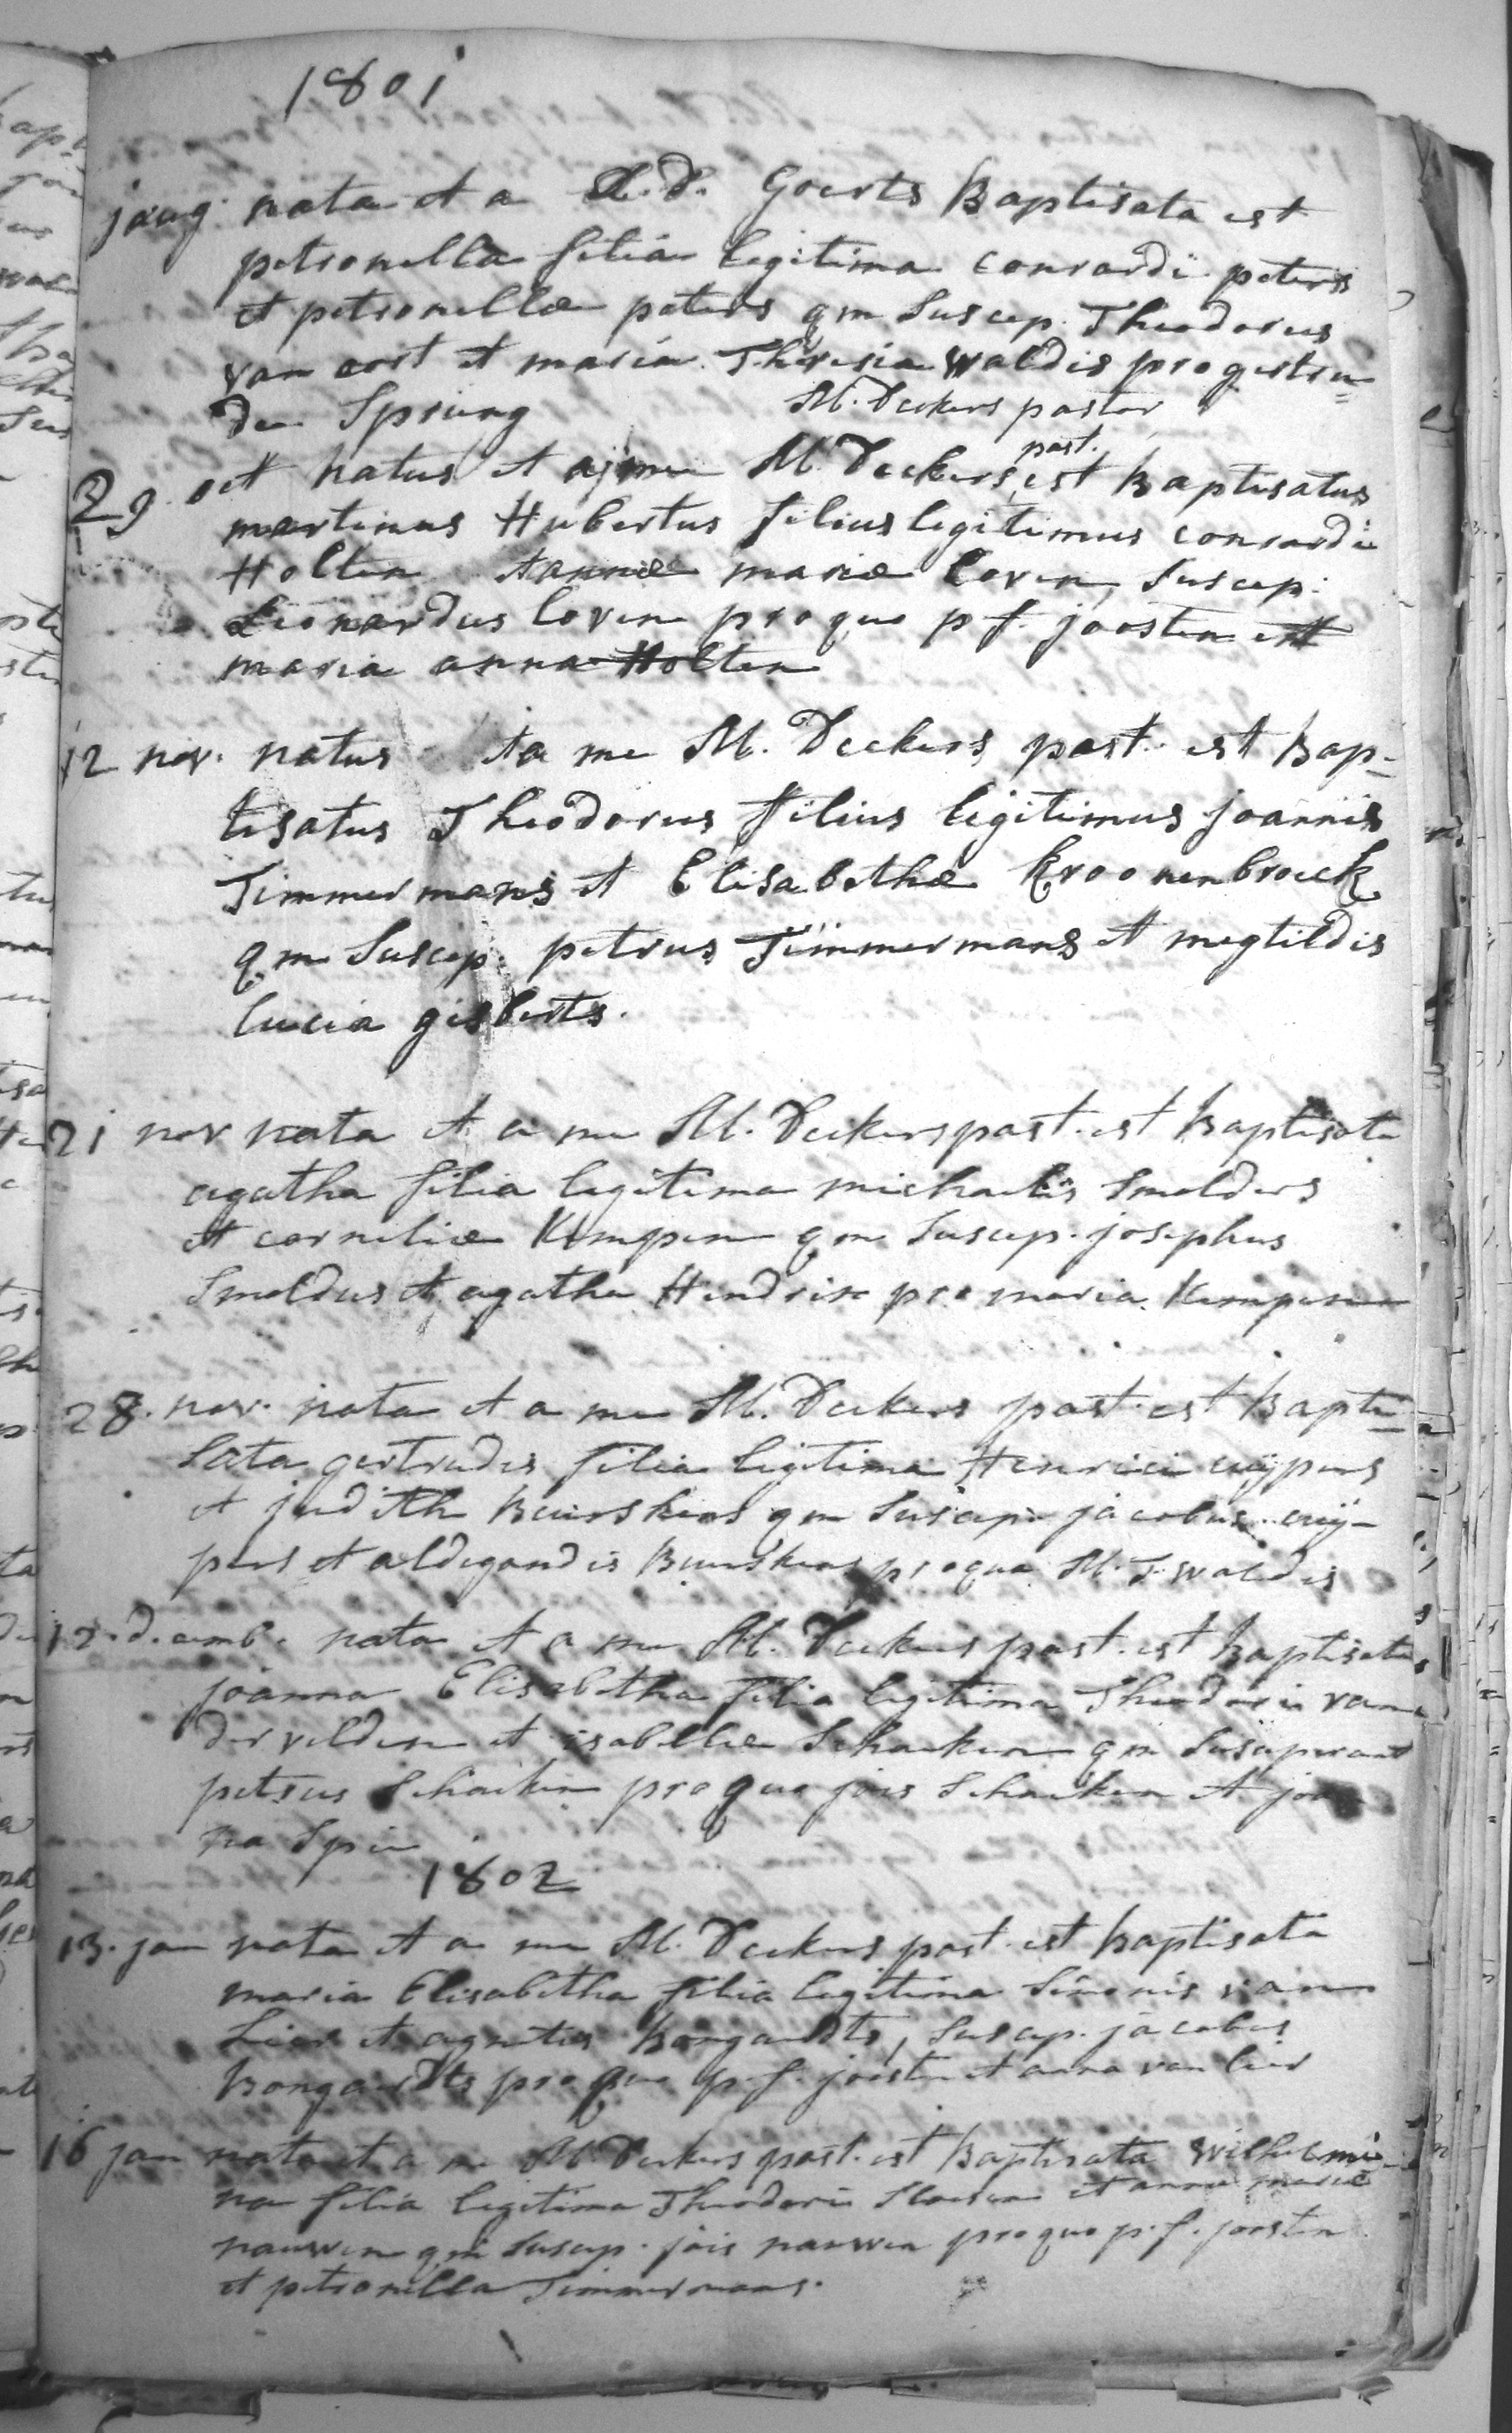 1801
j aug. nata et a R.D. Goerts Baptisata est
petronella filia legitima conrardi peters
et petronellae peters qm Suscep. Theodorus
van oort et maria Theresia Waldis pro gertru=
de Spriung M. Deckers pastor
29. oct natus et a me M. Deckers past. est Baptisatus
martinus Hubertus filius legitimus conrardi
Holten et annae mariae Coven, Suscep.
Leonardus Coven pro quo p f. joosten et
maria anna Holten
12 nov. natus et a me M. Deckers past. est Bap-
tisatus Theodorus filius legitimus joannis
Timmermans et Elisabethae Kroonenbroeck
qm Suscep. petrus Timmermans et megtildis
lucia gisberts.
21 nov nata et a me M. Deckers past. est Baptisata
agatha filia legitima michaelis Smolders
et corneliae Kempen qm Suscep. josephus
Smolders et agatha Hendrix pro maria Kempen
28. nov. nata et a me M. Deckers past. est Bapti=
Sata gertrudis filia legitima Henrici cuÿpers
et judith Beurskens qm Suscep. jacobus cuÿ-
pers et aldegondis Beurskens pro qua M. T. Waldis
12. decemb. nata et a me M. Deckers past. est baptisata
joanna Elisabetha filia legitima Theodori van
der velden et isabellae Schaeken qm Susceperunt
petrus Schaeken pro quo jois Schaeken et joan
na Spie
1802
13. jan nata et a me M. Deckers past. est baptisata
maria Elisabetha filia legitima Simonis van
Lier et agnetis Bongaerdts, Suscep. jacobus
Bongaerdts pro quo p. f. joosten et anna van lier
16 jan nata et a me M. Deckers past. est Baptisata Wilhelmi-
na filia legitima Theodori Sloesen et annae mariae
nauwen qm Suscep. jois nauwen pro quo p. f. joosten
et petronella Timmermans.